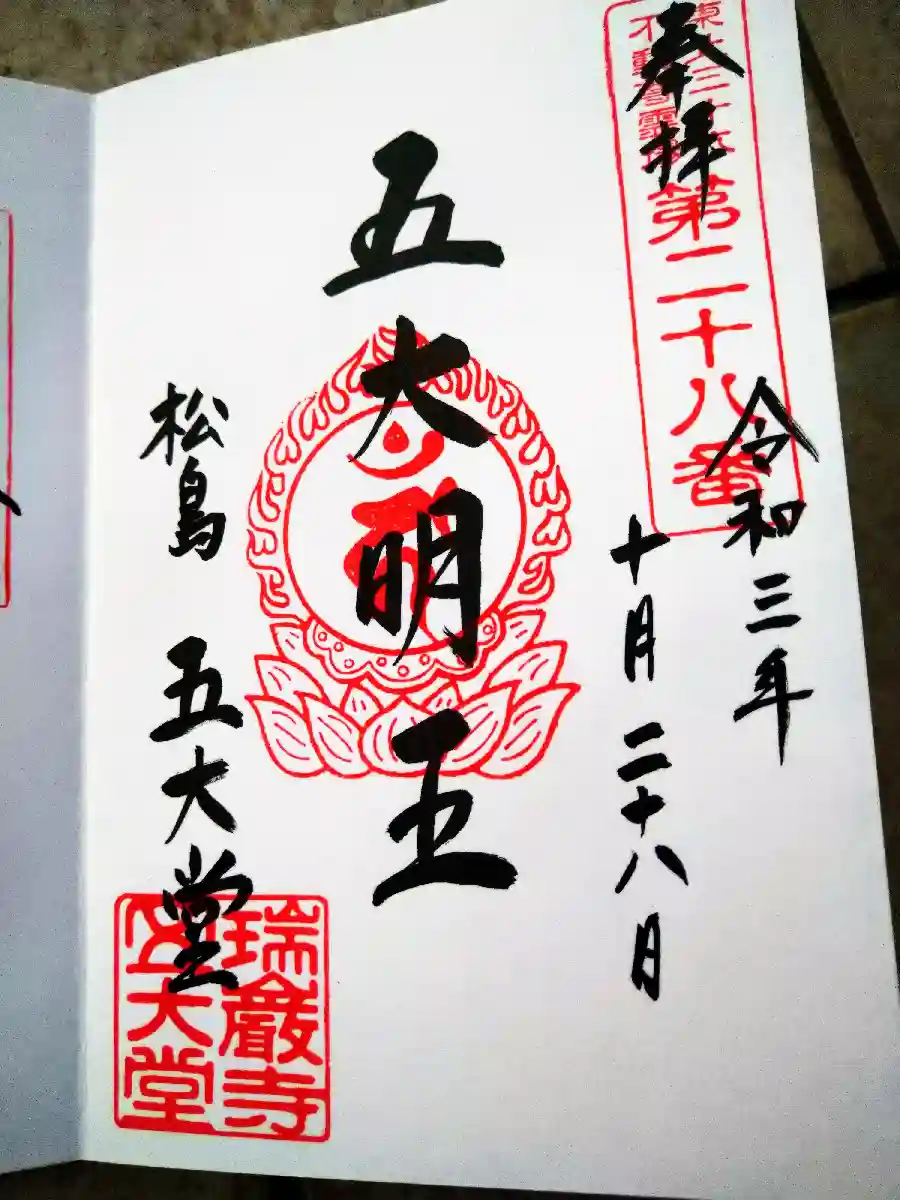 奉拝
東北三十六
不動尊霊場
第二十八番
令和三年
十月二十八日
五大明王
松島 五大堂
瑞巖寺
五大堂